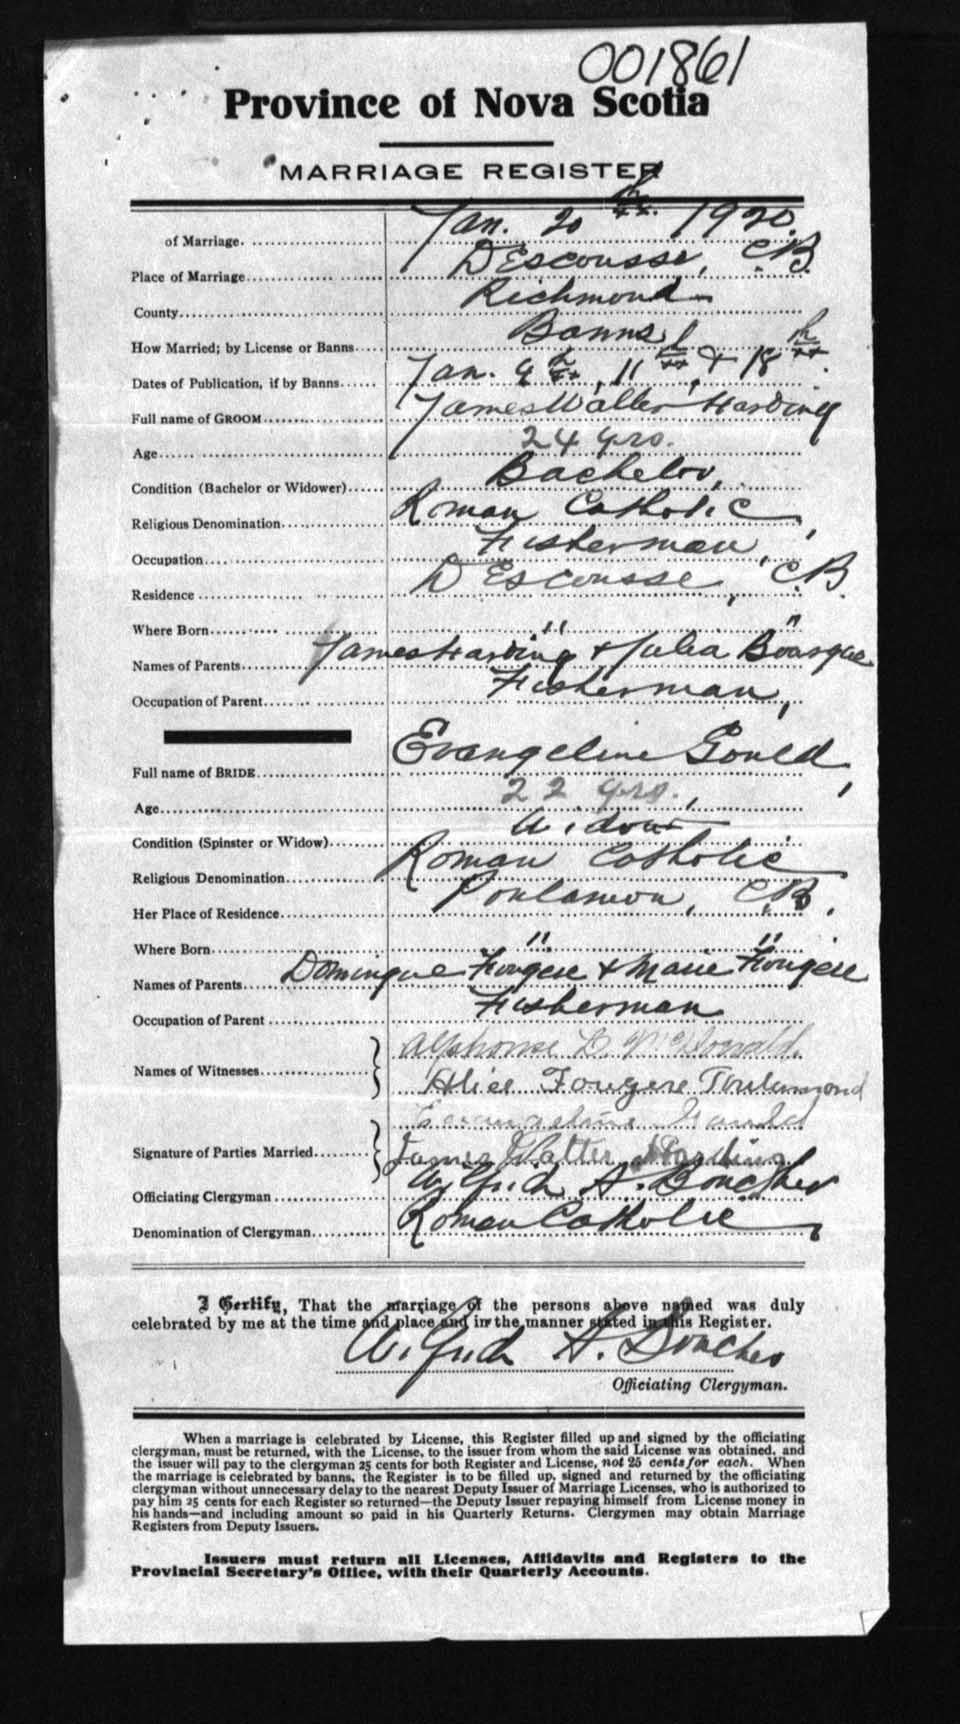 001861
Province of Nova Scotia
MARRIAGE REGISTER
of Marriage. Jan. 20th 1920.
Place of Marriage D'Escousse, C.B.
County Richmond
How Married; by License or Banns Banns
Dates of Publication, if by Banns Jan. 9th, 11th, & 18th.
Full name of GROOM James Walter Harding
Age 24 yrs.
Condition (Bachelor or Widower) Bachelor,
Religious Denomination Roman Catholic,
Occupation Fisherman,
Residence D'Escousse, C.B.
Where Born " "
Names of Parents James Harding & Julia Bourque
Occupation of Parent Fisherman,
Full name of BRIDE Evangeline Gould,
Age 22 yrs.,
Condition (Spinster or Widow) Widow
Religious Denomination Roman Catholic
Her Place of Residence Poulamon, C.B.
Where Born " "
Names of Parents Dominique Fougere & Marie Fougere
Occupation of Parent Fisherman
Names of Witnesses Alphonse D. McDonald.
Alice Fougere
Signature of Parties Married Evangeline Gould
James Walter Harding
Officiating Clergyman Wilfrid A. Boucher
Denomination of Clergyman Roman Catholic
I Certify, That the marriage of the persons above named was duly
celebrated by me at the time and place and in the manner stated in this Register.
Wilfrid A. Boucher
Officiating Clergyman.
When a marriage is celebrated by License, this Register filled up and signed by the officiating
clergyman, must be returned, with the License, to the issuer from whom the said License was obtained, and
the issuer will pay to the clergyman 25 cents for both Register and License, not 25 cents for each. When
the marriage is celebrated by banns, the Register is to be filled up, signed and returned by the officiating
clergyman without unnecessary delay to the nearest Deputy Issuer of Marriage Licenses, who is authorized to
pay him 25 cents for each Register so returned—the Deputy Issuer repaying himself from License money in
his hands—and including amount so paid in his Quarterly Returns. Clergymen may obtain Marriage
Registers from Deputy Issuers.
Issuers must return all Licenses, Affidavits and Registers to the
Provincial Secretary's Office, with their Quarterly Accounts.